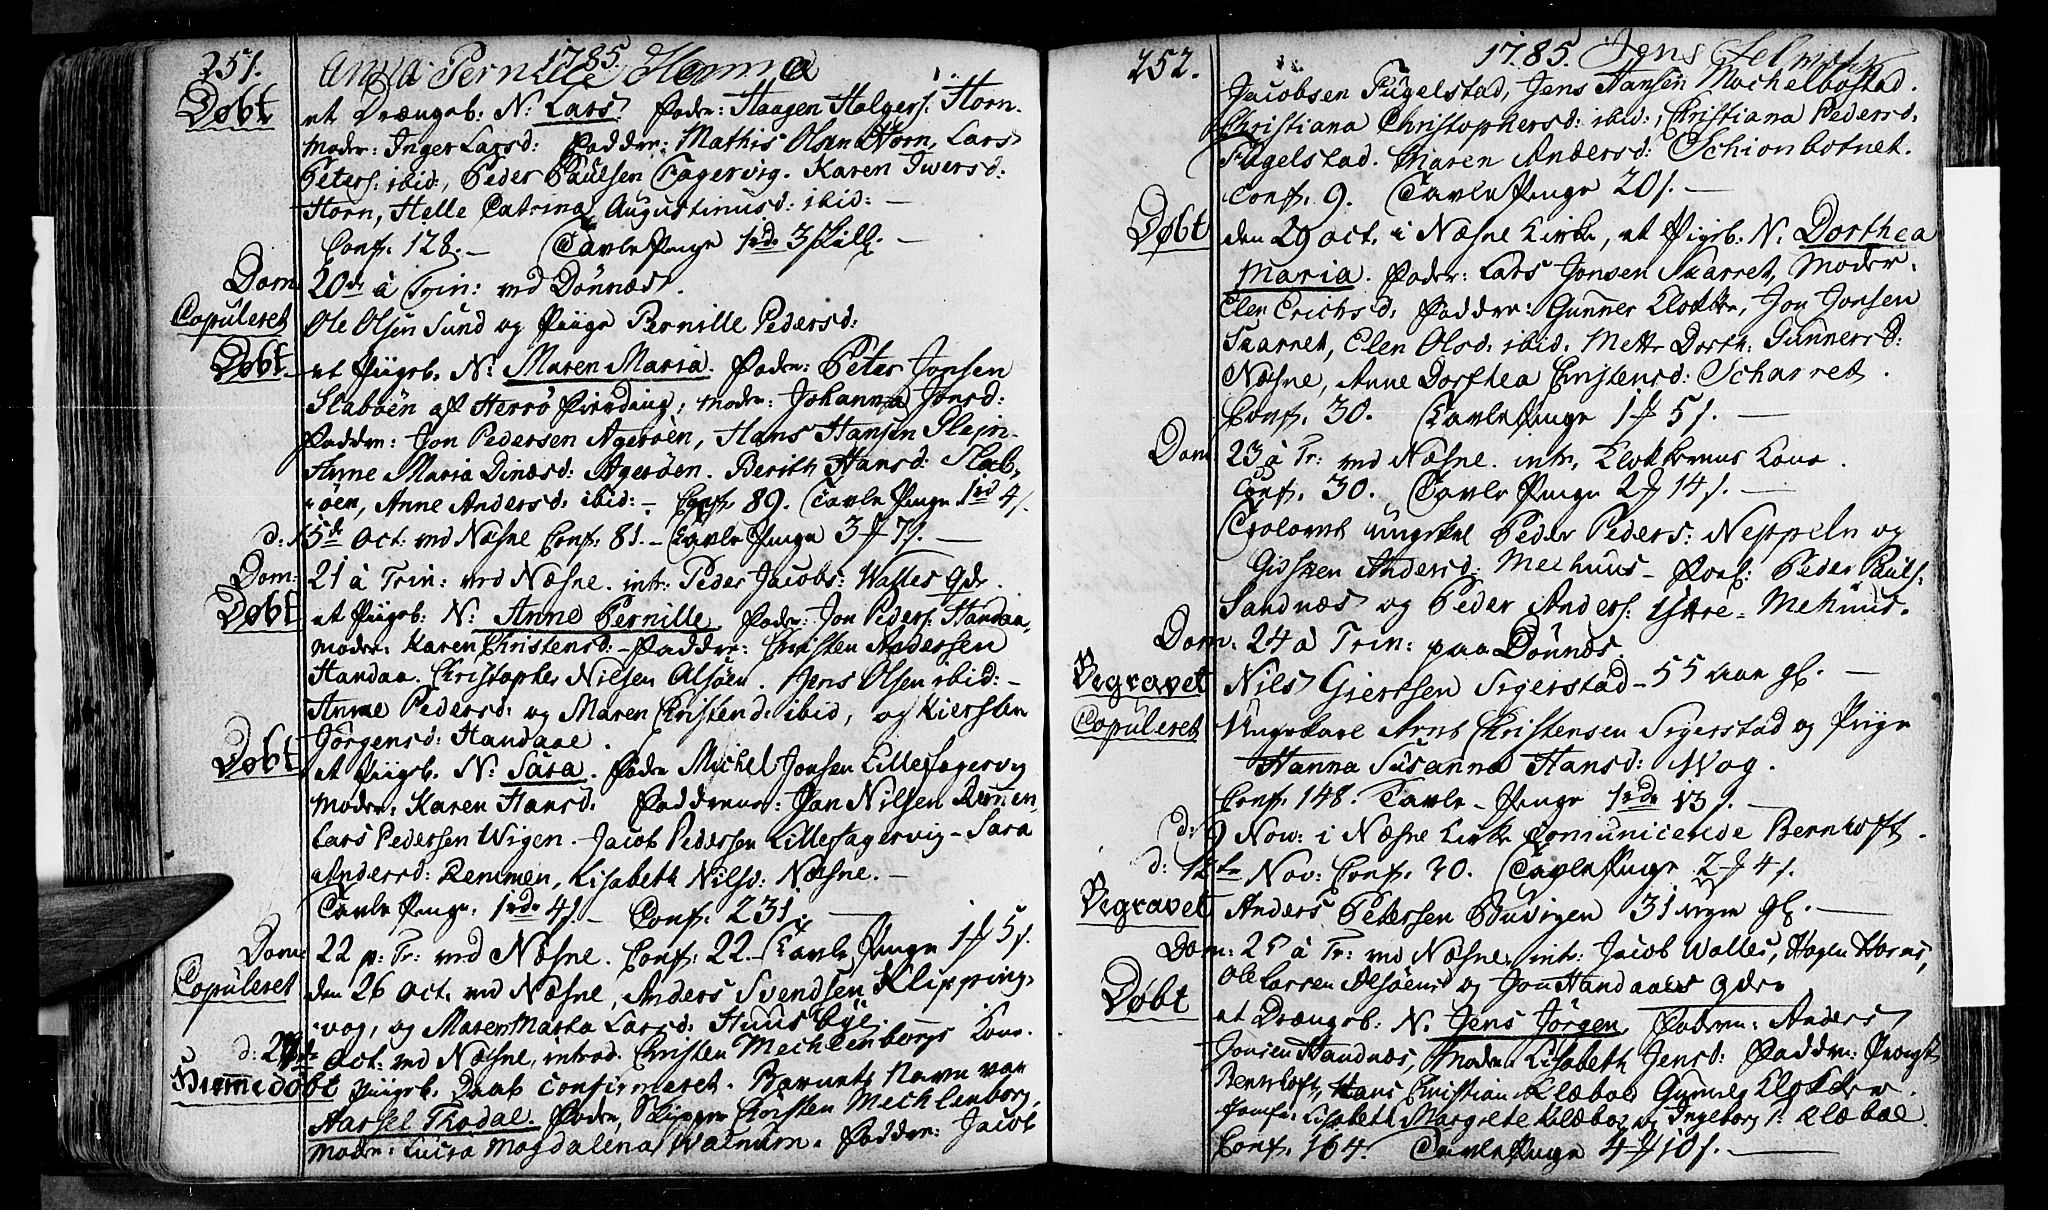 251. 1785.
Anna Pernille Hemma
Døbt et Drængeb. N: Lars. Fader: Haagen Holgers. Horn.
Moder: Inger Larsd: Faddre: Mathis Olsen Horn, Lars
Peters: ibid, Peder Paulsen Fagervig. Karen Iwersd:
Horn, Helle Catrina Augustinusd: ibid: —
Conf. 128. — Tavle Penge 1 rdr 3 skill. —
Dom. 20de à Trin: ved Dönnæs.
Copuleret Ole Olsen Sund og Piige Pernille Pedersd:
Døbt et Piigeb. N: Maren Maria. Fader: Peter Jonsen
Slaböen af Herrö Fierding, Moder: Johanna Jonsd:
Faddre: Jon Pedersen Ageröen, Hans Hansen
Anne Maria Dinæsd: Ageröen. Berith Hansd: Slab-
öen, Anne Andersd: ibid: — Conf. 89. Tavle Penge 1 rd 4 s.
d: 15de Oct: ved Næsne Conf: 81. — Tavle Penge 3 7 s. —
Dom: 21 à Trin: ved Næsne. intr: Peder Jacobs: Walles
Døbt et Piigeb. N: Anne Pernille. Fader: Jon Peders: Handaa,
Moder: Karen Christensd: — Faddre: Christen Andersen
Handaa. Christopher Nilsen Alsöen. Jens Olsen ibid: —
Anne Pedersd: og Maren Christend: ibid, og Kiersten
Jörgensd: Handaae.
Døbt et Piigeb. N: Sara. Fader Michel Jonsen Lillefagervig
Moder: Karen Hansd. Faddrene: Jan Nilsen Remen,
Lars Pedersen Wigen. — Jacob Pedersen Lillefagervig — Sara
Andersd: Remmen, Lisabeth Nilsd: Næsne. —
Tavle Penge: 1 rdr 4 s. — Conf: 231. —
Dom: 22 p: Tr: ved Næsne. Conf: 22 — Tavle Penge 1 5 s.
Copuleret den 26 Oct. ved Næsne, Anders Svendsen Klipping-
vog, og Maren Marta Larsd: Huusbye.
d: Oct: ved Næsne, introd. Christen Mechlenborgs Kone.
Hiemedøbt Piigeb. Daab confirmeret. Barnets Navn var
Aassel Thodal. Fader, Skipper Christen Mechlenborg,
Moder: Lucia Magdalena Walnum. Faddre: Jacob
252. 1785. Jens
Jacobsen Fugelstad, Jens Hansen Mechelbostad.
Christiana Christophersd: ibid:, Christiana Pedersd:
Fugelstad. Maren Andersd: Schionbotnet.
Conf. 9. Tavle Penge 20 s. —
Døbt den 29 Oct. i Næsne Kirke, et Pigeb. N. Dorthea
Maria. Fader: Lars Jonsen Skarret, Moder:
Elen Erichsd: Faddre: Gunner Klokker, Jon Jonsen
Skarret, Elen Olsd: ibid. Mette Dorth: Gunnersd:
Næsne, Anne Dorthea Christensd: Scharret.
Conf. 30. Tavle Penge 1 5 s. —
Dom. 23 à Tr: ved Næsne. intr. Klokkerens Kone.
Conf. 30. Tavle Penge 2 14 s. —
Trolovet ungekel Peder Peders: Neppeln og
Gidsken Andersd: Mechuus — Forl: Peder Pauls:
Sandnæs og Peder Anders: Mehuus.
Dom: 24 à Trin: paa Dönnæs.
Begravet Nils Giertsen Segerstad — 55 Aar gl. —
Copuleret Ungekarl Arnt Christensen Segerstad og Piige
Hanna Susanna Hansd: Wog.
Conf. 148. Tavle — Penge 1 rdr 13 s. —
d: 9 Nov: i Næsne Kirke Comunicerede Bernhoft.
d: 12te Nov: Conf. 20. Tavle Penge 2 4 s.
Begravet Anders Petersen Buvigen 31 uger gl. —
Dom: 25 à Tr: ved Næsne: intr: Jacob Walles, Hagen Horns,
Ole Larsen Alsöens og Jon Handaaes
Døbt et Drængeb: N. Jens Jörgen. Faderen: Anders
Jonsen Handnæs, Moder Lisabeth Jensd: Faddre: Provst
Bernhoft, Hans Christian Klæboe Gunner Klokker.
Jomfr: Lisabeth Margrete Klæboe og Ingeborg S: Klæboe.
Conf: 164. Tavle Penge 4 10 s. —